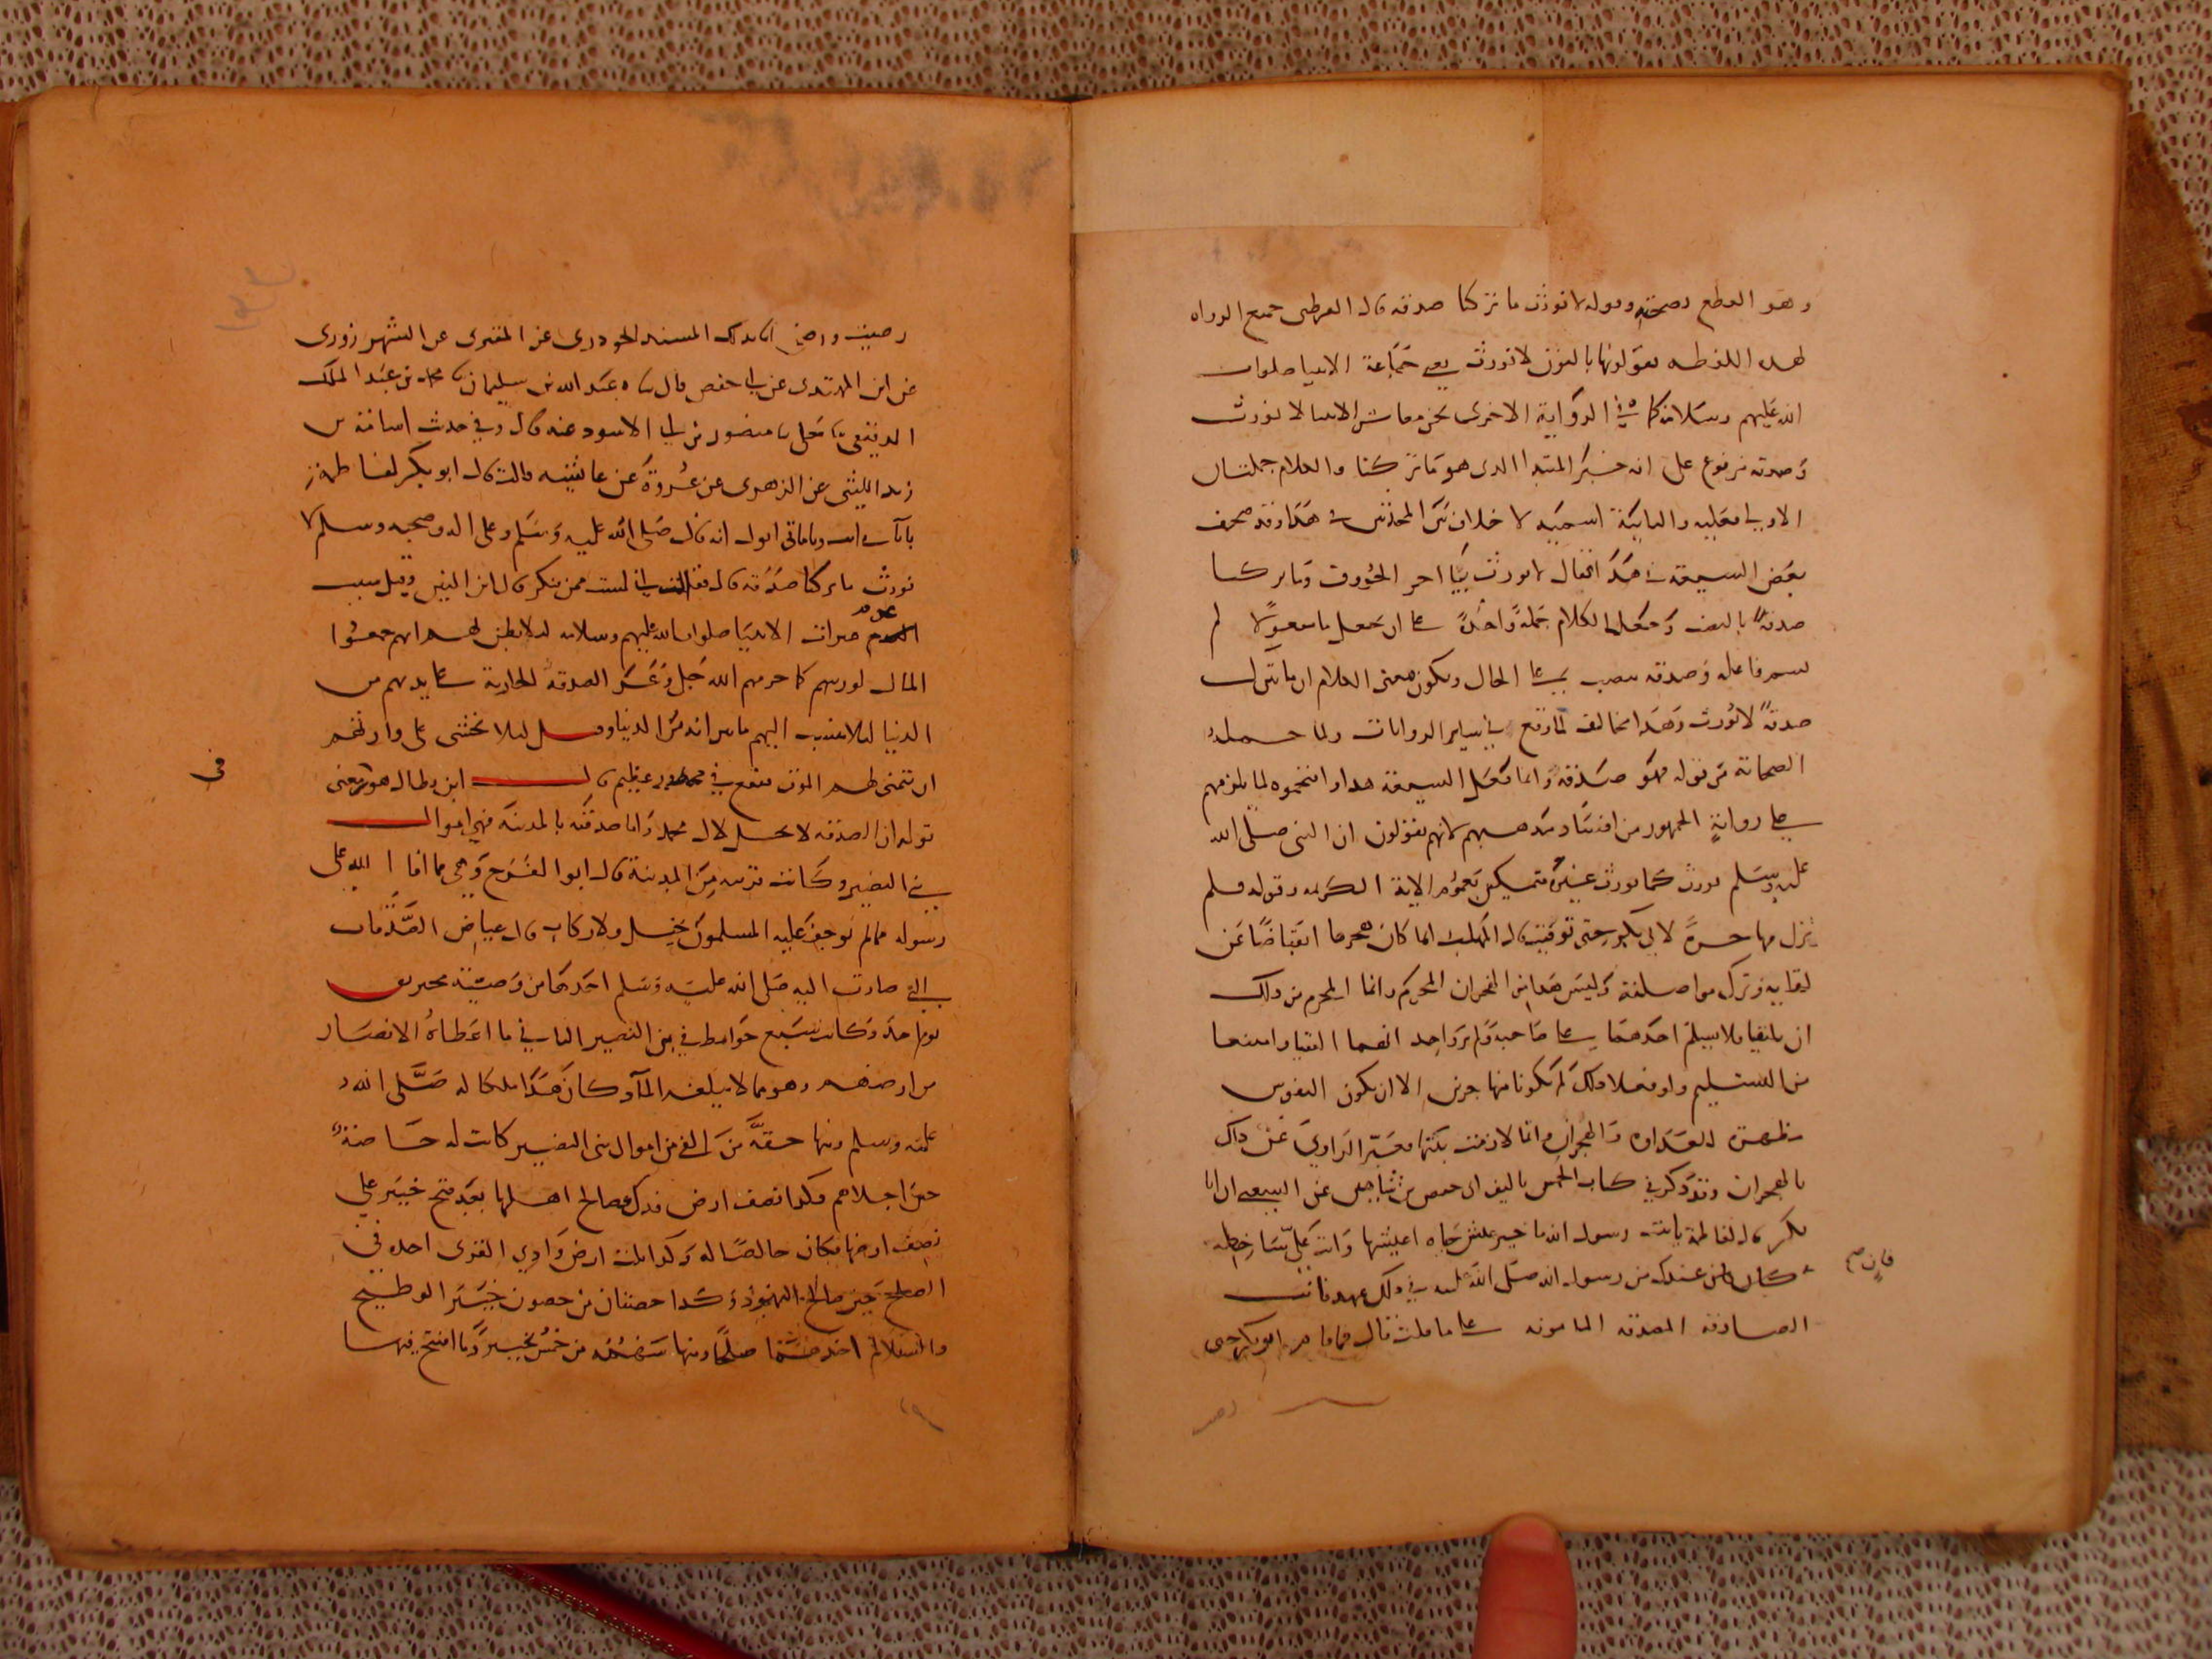 وهو القطع بصحته وقوله لا نورث ما تركنا صدقة قال القرطبي جميع الرواة
لهذه اللفظة يقولونها بالنون لا نورث يعني جماعة الانبيا صلوات
الله عليهم وسلامه كما في الرواية الاخرى نحن معاشر الانبيا لا نورث
وصدقة مرفوع على انه خبر المبتدا الذي هو ما تركنا والكلام جملتان
الاولى فعلية والثانية اسمية لا خلاف بين المحدثين في هذا وقد صحف
بعض الشيعة في هذا فقال لا يورث بيا اخر الحروف وما تركنا
صدقة بالنصب وجعل الكلام جملة واحدة على ان يجعل ما مفعولا لم
يسم فاعله وصدقة ينصب على الحال ويكون معنى الكلام ان ما نترك
صدقة لا نورث وهذا مخالف لما وقع في ساير الروايات ولما حمله
الصحابة من قوله فهو صدقة وانما فعل الشيعة هذا واقتحموه لما يلزمهم
على رواية الجمهور من افساد مذهبهم لانهم يقولون ان النبي صلى الله
عليه وسلم يورث كما يورث غيره متمسكين بعموم الاية الكريمة وقوله فلم
تزل مهاجرة لابي بكر حتى توفيت قال المهلب انما كان هجرها انقباضا عن
لقايه وترك مواصلته وليس هذا من الهجران المحرم وانما المحرم من ذلك
ان يلتقيا فلا يسلم احدهما على صاحبه ولم يرو احد انهما التقيا وامتنعا
من التسليم ولو فعلا ذلك لم يكونا متهاجرين الا ان يكون النفوس
مظهرة للعداوة والهجران وانما لازمت بيتها فعبر الراوي عن ذلك
بالهجران وقد ذكر في كتاب الخمس تاليف ابي حفص بن شاهين عن الشعبي ان ابا
بكر قال لفاطمة يابنت رسول الله ما خير عيش حياة اعيشها وانت علي ساخطة
فان صح
كان عندك من رسول الله صلى الله عليه في ذلك عهد فانت
الصادقة المصدقة المامونة على ما قلت قال فما قام ابو بكر حتى
رضيت ورضي انا بذلك المسند الجودري عن المقرى عن الشهرزوري
عن ابن المهتدي عن ابي حفص قال نا عبد الله بن سليمان نا محمد بن عبد الملك
الدقيقي نا معلى نا منصور بن ابي الاسود عنه قال وفي حديث اسامة بن
زيد الليثي عن الزهري عن عروة عن عايشة قالت قال ابو بكر لفاطمة
انه قال صلى الله عليه وسلم وعلى اله وصحبه وسلم لا
نورث ما تركنا صدقة قال فقالت اني لست ممن ينكر قال ابن التين وقيل سبب
عدم
ميراث الانبيا صلوات الله عليهم وسلامه ليلا يظن بهم انهم جمعوا
المال لورثتهم كما حرمهم الله جل وعز الصدقة الجارية على ايديهم من
الدنيا ليلا ينسب اليهم ما تبراوا منه من الدنيا وقيل ليلا يخشى على وارثهم
ان يتمنى لهم الموت فيقع في محظور عظيم قال ابن بطال هو معنى
في
قوله ان الصدقة لا تحل لال محمد واما صدقته بالمدينة فهي اموال
بني النضير وكانت قريبة من المدينة قال ابو الفرج وهي مما افا الله على
رسوله مما لم يوجف عليه المسلمون بخيل ولا ركاب قال عياض الصدقات
التي صارت اليه صلى الله عليه وسلم احدها من وصية مخيريق
يوم احد وكانت سبع حوايط في بني النضير الثاني ما اعطاه الانصار
من ارضهم وهو مما لا يبلغه الماء وكان هذا ملكا له صلى الله
عليه وسلم ومنها حقه من الفي من اموال بني النضير كانت له خاصة
حين اجلاهم وكذا نصف ارض فدك صالح اهلها بعد فتح خيبر على
نصف ارضها فكان خالصا له وكذا ثلث ارض وادي القرى اخذه في
الصلح حين صالح اليهود وكذا حصنان من حصون خيبر الوطيح
والسلالم اخذهما صلحا ومنها سهمه من خمس خيبر وما افتتح فيها